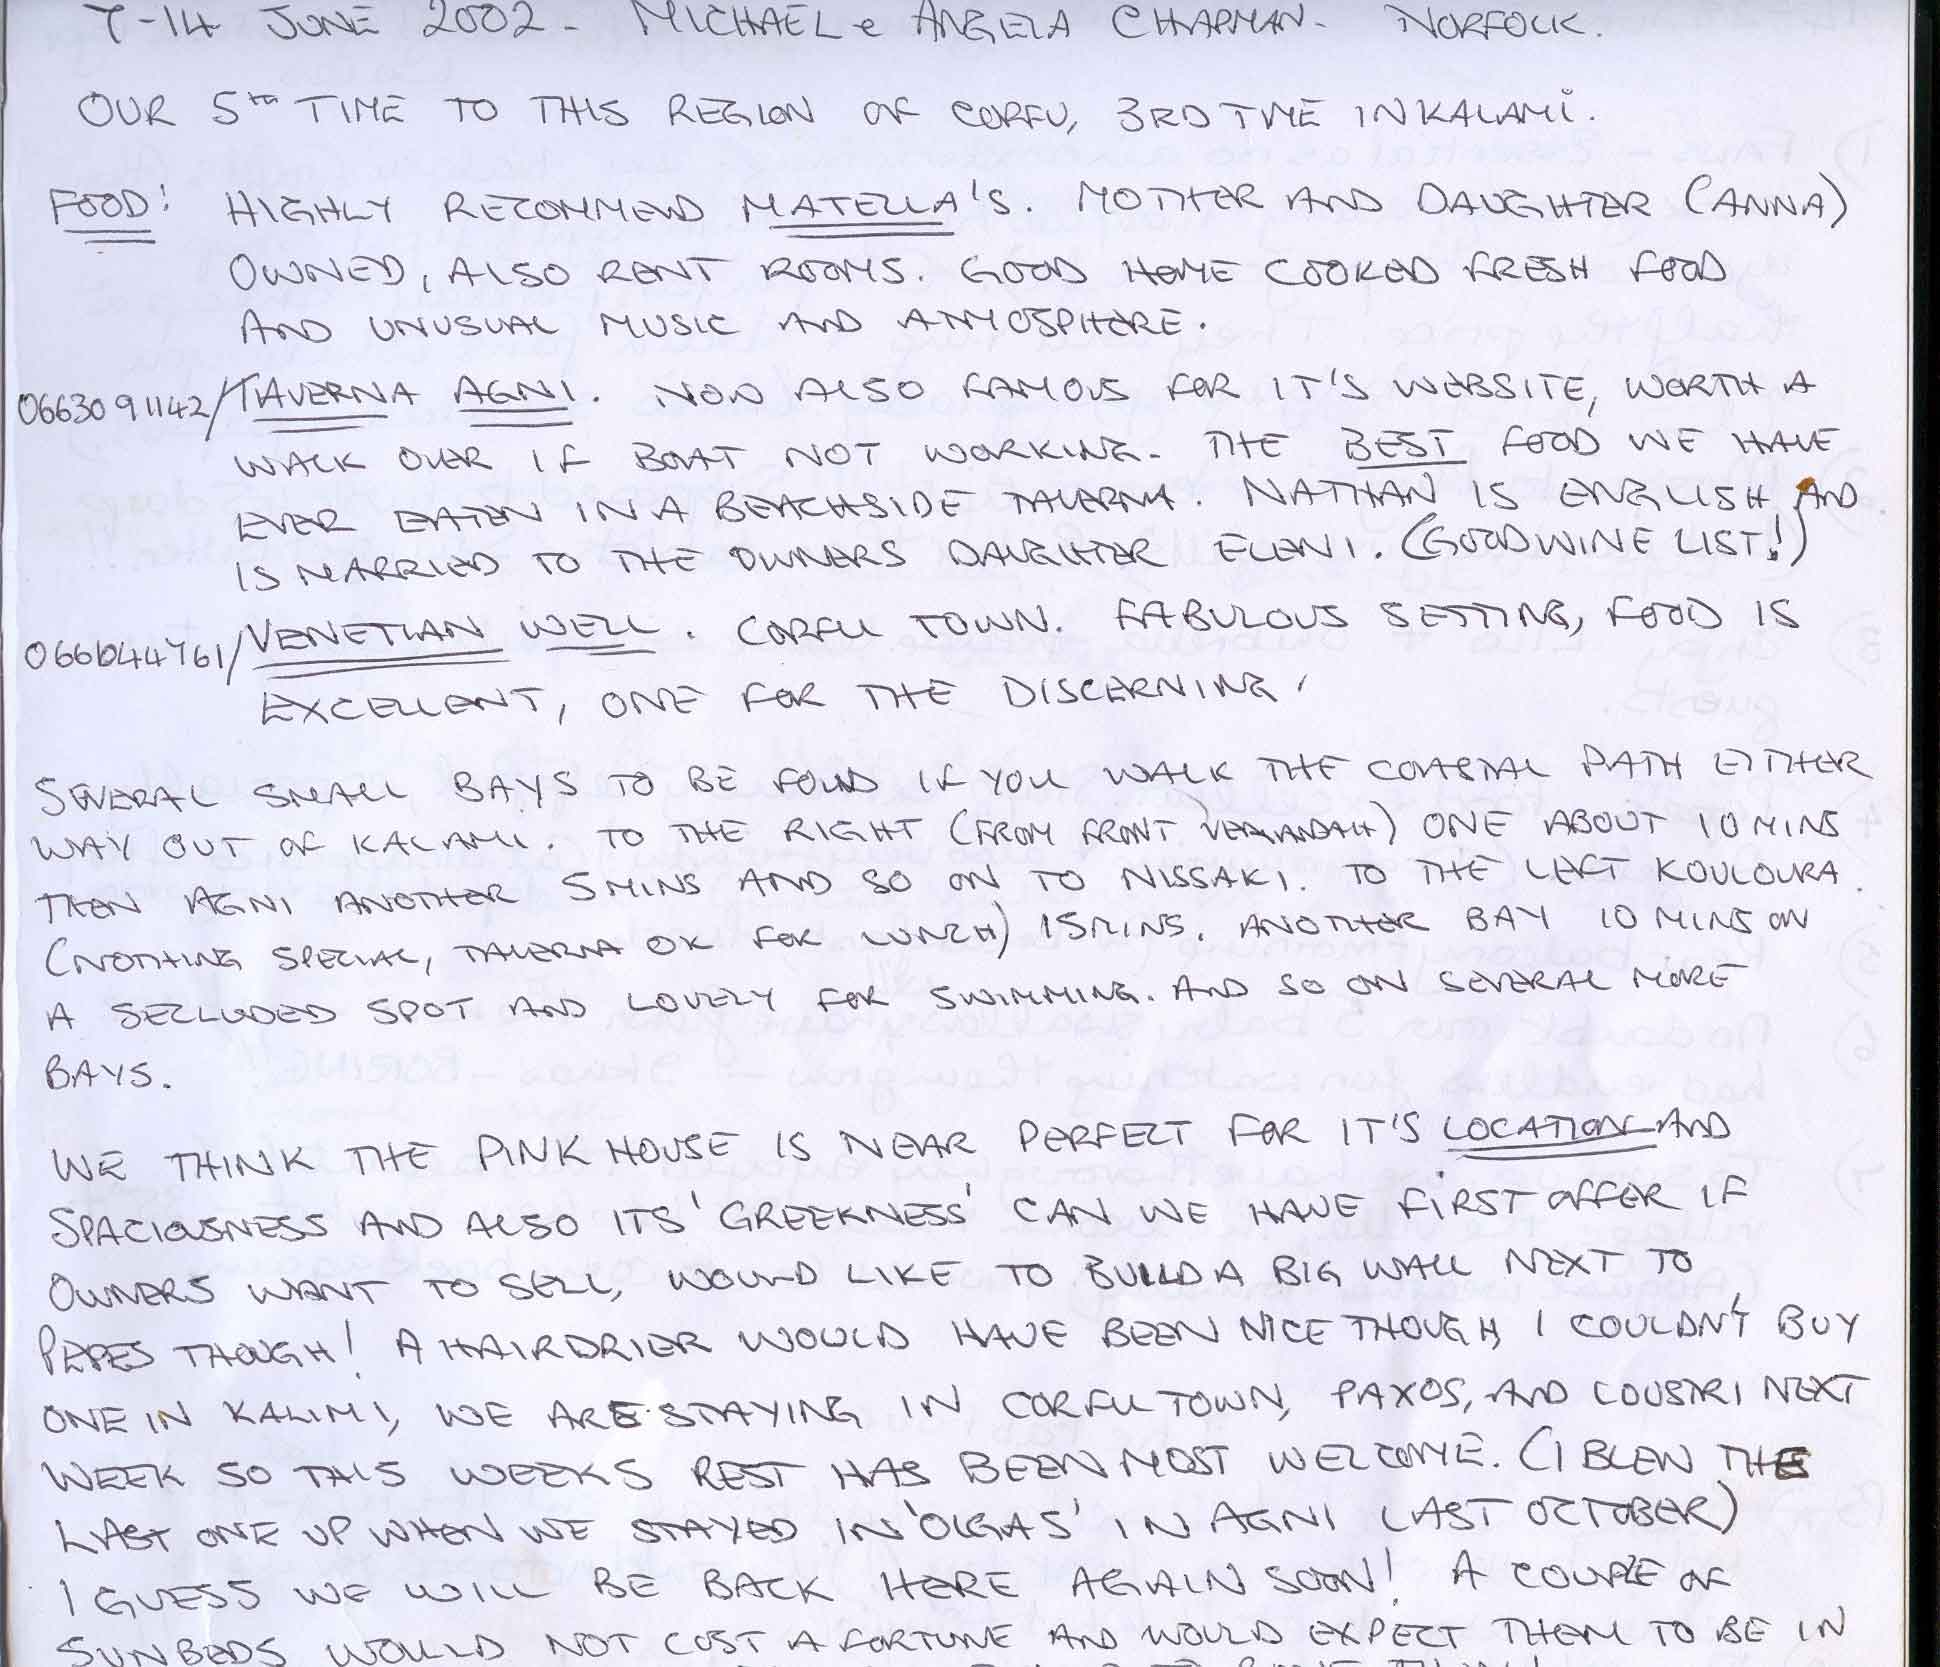 7-14 JUNE 2002 - MICHAEL & ANGELA CHAPMAN - NORFOLK.
OUR 5TH TIME TO THIS REGION OF CORFU, 3RD TIME IN KALAMI.
FOOD: HIGHLY RECOMMEND MATELLA'S. MOTHER AND DAUGHTER (ANNA)
OWNED, ALSO RENT ROOMS. GOOD HOME COOKED FRESH FOOD
AND UNUSUAL MUSIC AND ATMOSPHERE.
0663091142/TAVERNA AGNI. NOW ALSO FAMOUS FOR IT'S WEBSITE, WORTH A
WALK OVER IF BOAT NOT WORKING - THE BEST FOOD WE HAVE
EVER EATEN IN A BEACHSIDE TAVERNA. NATHAN IS ENGLISH AND
IS MARRIED TO THE OWNERS DAUGHTER ELENI. (GOOD WINE LIST!)
066644761/VENETIAN WELL. CORFU TOWN. FABULOUS SETTING, FOOD IS
EXCELLENT, ONE FOR THE DISCERNING,
SEVERAL SMALL BAYS TO BE FOUND IF YOU WALK THE COASTAL PATH EITHER
WAY OUT OF KALAMI. TO THE RIGHT (FROM FRONT VERANDAH) ONE ABOUT 10 MINS
THEN AGNI ANOTHER 5 MINS AND SO ON TO NISSAKI. TO THE LEFT KOULOURA.
(NOTHING SPECIAL, TAVERNA OK FOR LUNCH) 15 MINS. ANOTHER BAY 10 MINS ON
A SECLUDED SPOT AND LOVELY FOR SWIMMING. AND SO ON SEVERAL MORE
BAYS.
WE THINK THE PINK HOUSE IS NEAR PERFECT FOR IT'S LOCATION AND
SPACIOUSNESS AND ALSO ITS 'GREEKNESS' CAN WE HAVE FIRST OFFER IF
OWNERS WANT TO SELL, WOULD LIKE TO BUILD A BIG WALL NEXT TO
PEPES THOUGH! A HAIRDRIER WOULD HAVE BEEN NICE THOUGH, I COULDN'T BUY
ONE IN KALIMI, WE ARE STAYING IN CORFU TOWN, PAXOS, AND COUSTRI NEXT
WEEK SO THIS WEEKS REST HAS BEEN MOST WELCOME. (I BLEW THE
LAST ONE UP WHEN WE STAYED IN 'OLGAS' IN AGNI LAST OCTOBER)
I GUESS WE WILL BE BACK HERE AGAIN SOON! A COUPLE OF
SUNBEDS WOULD NOT COST A FORTUNE AND WOULD EXPECT THEM TO BE IN